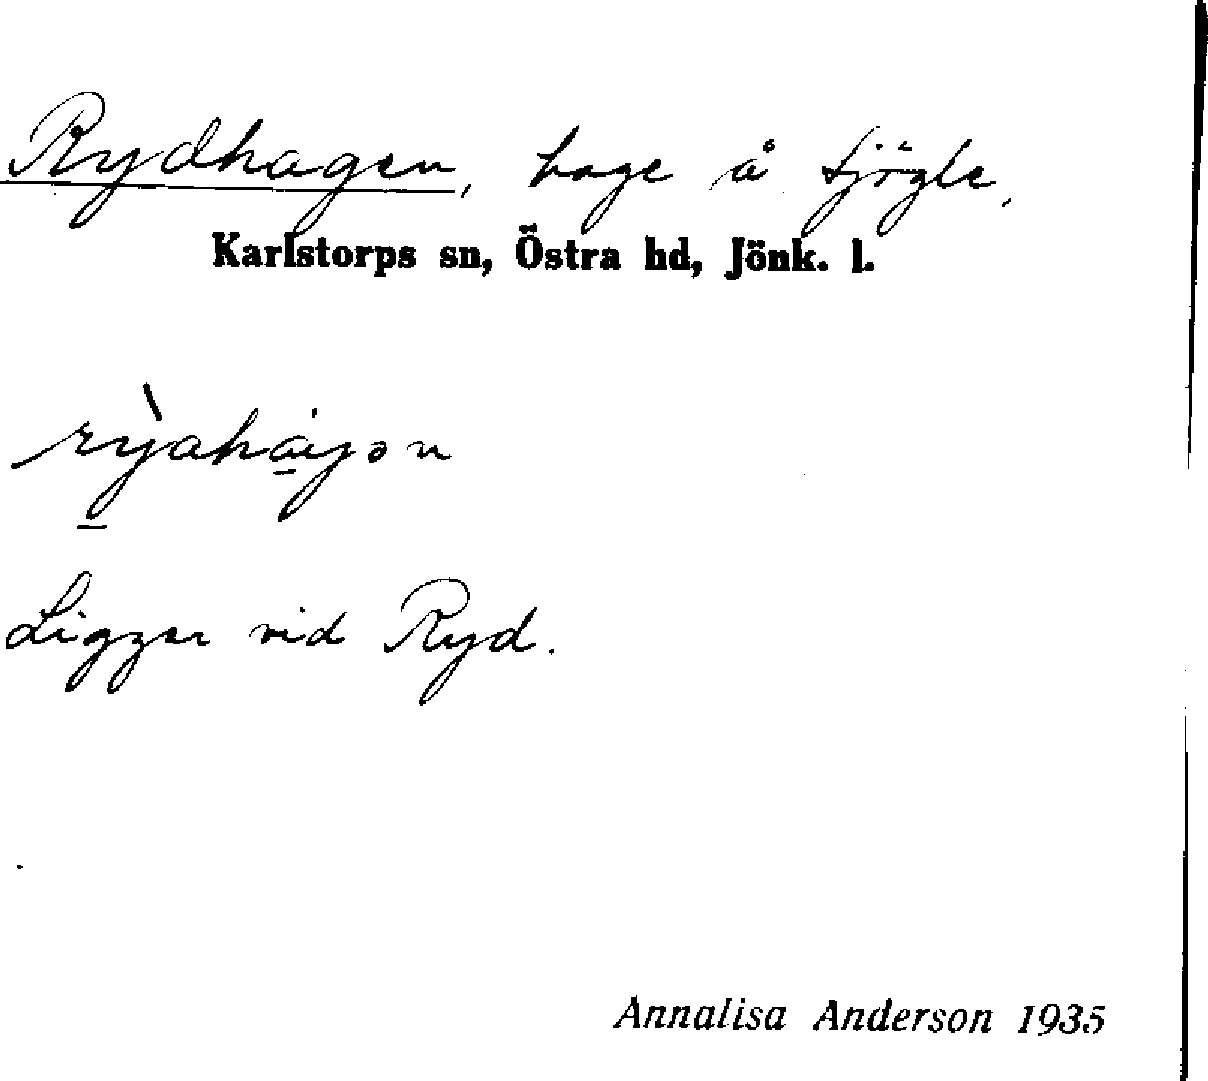 Rydhagen, hage å Fjögle,
Karlstorps sn, Östra hd, Jönk. l.
Ligger vid Ryd.
Annalisa Anderson 1935